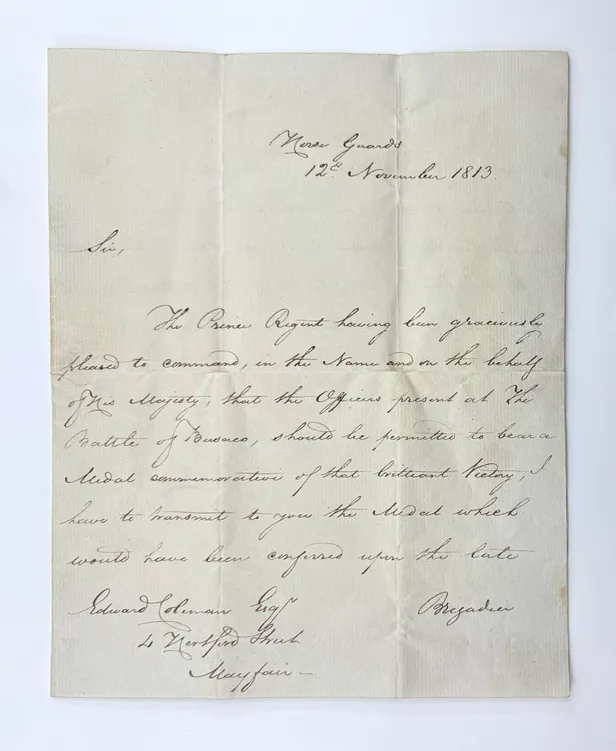 Horse Guards
12th November 1813.
Sir,
The Prince Regent having been graciously
pleased to command, in the Name and on the behalf
of His Majesty, that the Officers present at The
Battle of Busaco, should be permitted to bear a
Medal commemorative of that brilliant Victory, I
have to transmit to you the Medal which
would have been conferred upon the late
Edward Coleman Esqr
Brigadier
4 Hertford Street
Mayfair –